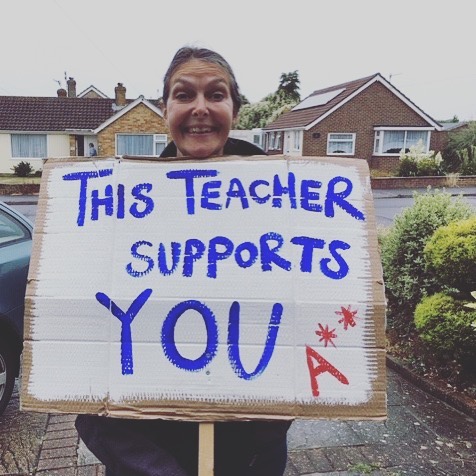 THIS TEACHER
SUPPORTS
YOU
A**